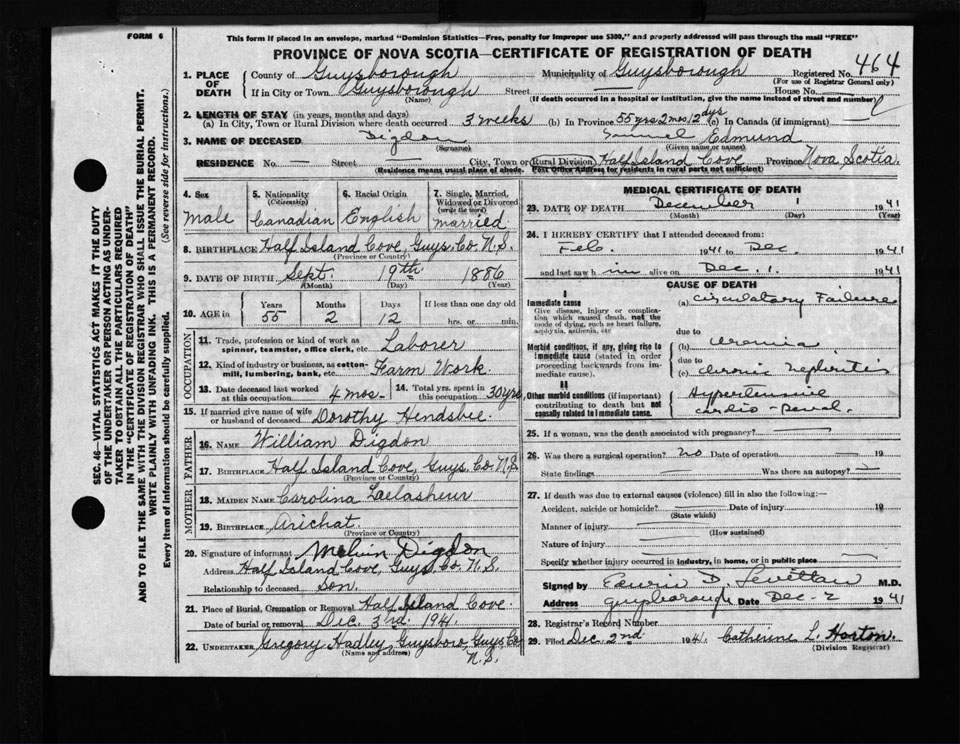 FORM 6
This form if placed in an envelope, marked "Dominion Statistics—Free, penalty for improper use $300," and properly addressed will pass through the mail "FREE"
PROVINCE OF NOVA SCOTIA—CERTIFICATE OF REGISTRATION OF DEATH
1. PLACE OF DEATH County of Guysborough Municipality of Guysborough Registered No. 464
(For use of Registrar General only)
If in City or Town Guysborough Street — House No. —
(Name) (If death occurred in a hospital or institution, give the name instead of street and number)
2. LENGTH OF STAY (in years, months and days)
(a) In City, Town or Rural Division where death occurred 3 weeks (b) In Province 55 yrs 2 mos 12 dys (c) In Canada (if immigrant)
3. NAME OF DECEASED Digdon Samuel Edmund
(Surname) (Given name or names)
RESIDENCE No. — Street — City, Town or Rural Division Half Island Cove Province Nova Scotia.
(Residence means usual place of abode. Post Office Address for residents in rural parts not sufficient)
4. Sex Male
5. Nationality (Citizenship) Canadian
6. Racial Origin English
7. Single, Married, Widowed or Divorced (write the word) Married.
8. BIRTHPLACE Half Island Cove, Guys. Co. N.S.
(Province or Country)
9. DATE OF BIRTH Sept. 19th 1886
(Month) (Day) (Year)
10. AGE in Years 55 Months 2 Days 12 If less than one day old hrs. or min.
OCCUPATION
11. Trade, profession or kind of work as spinner, teamster, office clerk, etc. Laborer
12. Kind of industry or business, as cotton-mill, lumbering, bank, etc. Farm Work.
13. Date deceased last worked at this occupation 4 mos. 14. Total yrs. spent in this occupation 30 yrs
15. If married give name of wife or husband of deceased Dorothy Hendsbee.
FATHER
16. NAME William Digdon
17. BIRTHPLACE Half Island Cove, Guys. Co. N.S
(Province or Country)
MOTHER
18. MAIDEN NAME Carolina
19. BIRTHPLACE Arichat.
(Province or Country)
20. Signature of informant Melvin Digdon
Address Half Island Cove, Guys. Co. N.S.
Relationship to deceased Son.
21. Place of Burial, Cremation or Removal Half Island Cove.
Date of burial or removal Dec. 3rd. 1941.
22. UNDERTAKER Gregory Hadley, Guysboro, Guys Co
(Name and address) N.S.
MEDICAL CERTIFICATE OF DEATH
23. DATE OF DEATH December 1 1941
(Month) (Day) (Year)
24. I HEREBY CERTIFY that I attended deceased from:
Feb. 1941 to Dec. 1941
and last saw him alive on Dec. 1. 1941
CAUSE OF DEATH
I
Immediate cause (a) Circulatory Failure
Give disease, injury or complication which caused death, not the mode of dying, such as heart failure, asphyxia, asthenia, etc
due to
Morbid conditions, if any, giving rise to immediate cause (stated in order proceeding backwards from immediate cause). (b) Uremia
due to
(c) Chronic Nephritis
II
Other morbid conditions (if important) contributing to death but not causally related to immediate cause. Hypertensive
Cardio-Renal.
25. If a woman, was the death associated with pregnancy? —
26. Was there a surgical operation? no Date of operation — 19
State findings — Was there an autopsy? —
27. If death was due to external causes (violence) fill in also the following:—
Accident, suicide or homicide? — Date of injury 19
(State which)
Manner of injury —
(How sustained)
Nature of injury —
Specify whether injury occurred in industry, in home, or in public place —
Signed by D. M.D.
Address Guysborough Date Dec-2 1941
28. Registrar's Record Number
29. Filed Dec. 2nd 1941. Catherine L. Horton.
(Division Registrar)
SEC. 46—VITAL STATISTICS ACT MAKES IT THE DUTY
OF THE UNDERTAKER OR PERSON ACTING AS UNDER-
TAKER TO OBTAIN ALL THE PARTICULARS REQUIRED
IN THE "CERTIFICATE OF REGISTRATION OF DEATH"
AND TO FILE THE SAME WITH THE DIVISION REGISTRAR WHO SHALL ISSUE THE BURIAL PERMIT.
WRITE PLAINLY WITH UNFADING INK. THIS IS A PERMANENT RECORD.
Every item of Information should be carefully supplied. (See reverse side for instructions.)